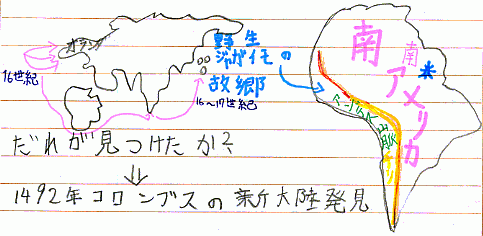 オランダ
16世紀
野生
ジャガイモの
故郷
16〜17世紀
南
アメリカ
南
米
アンデス山脈
チリ
だれが見つけたか?
1492年コロンブスの新大陸発見